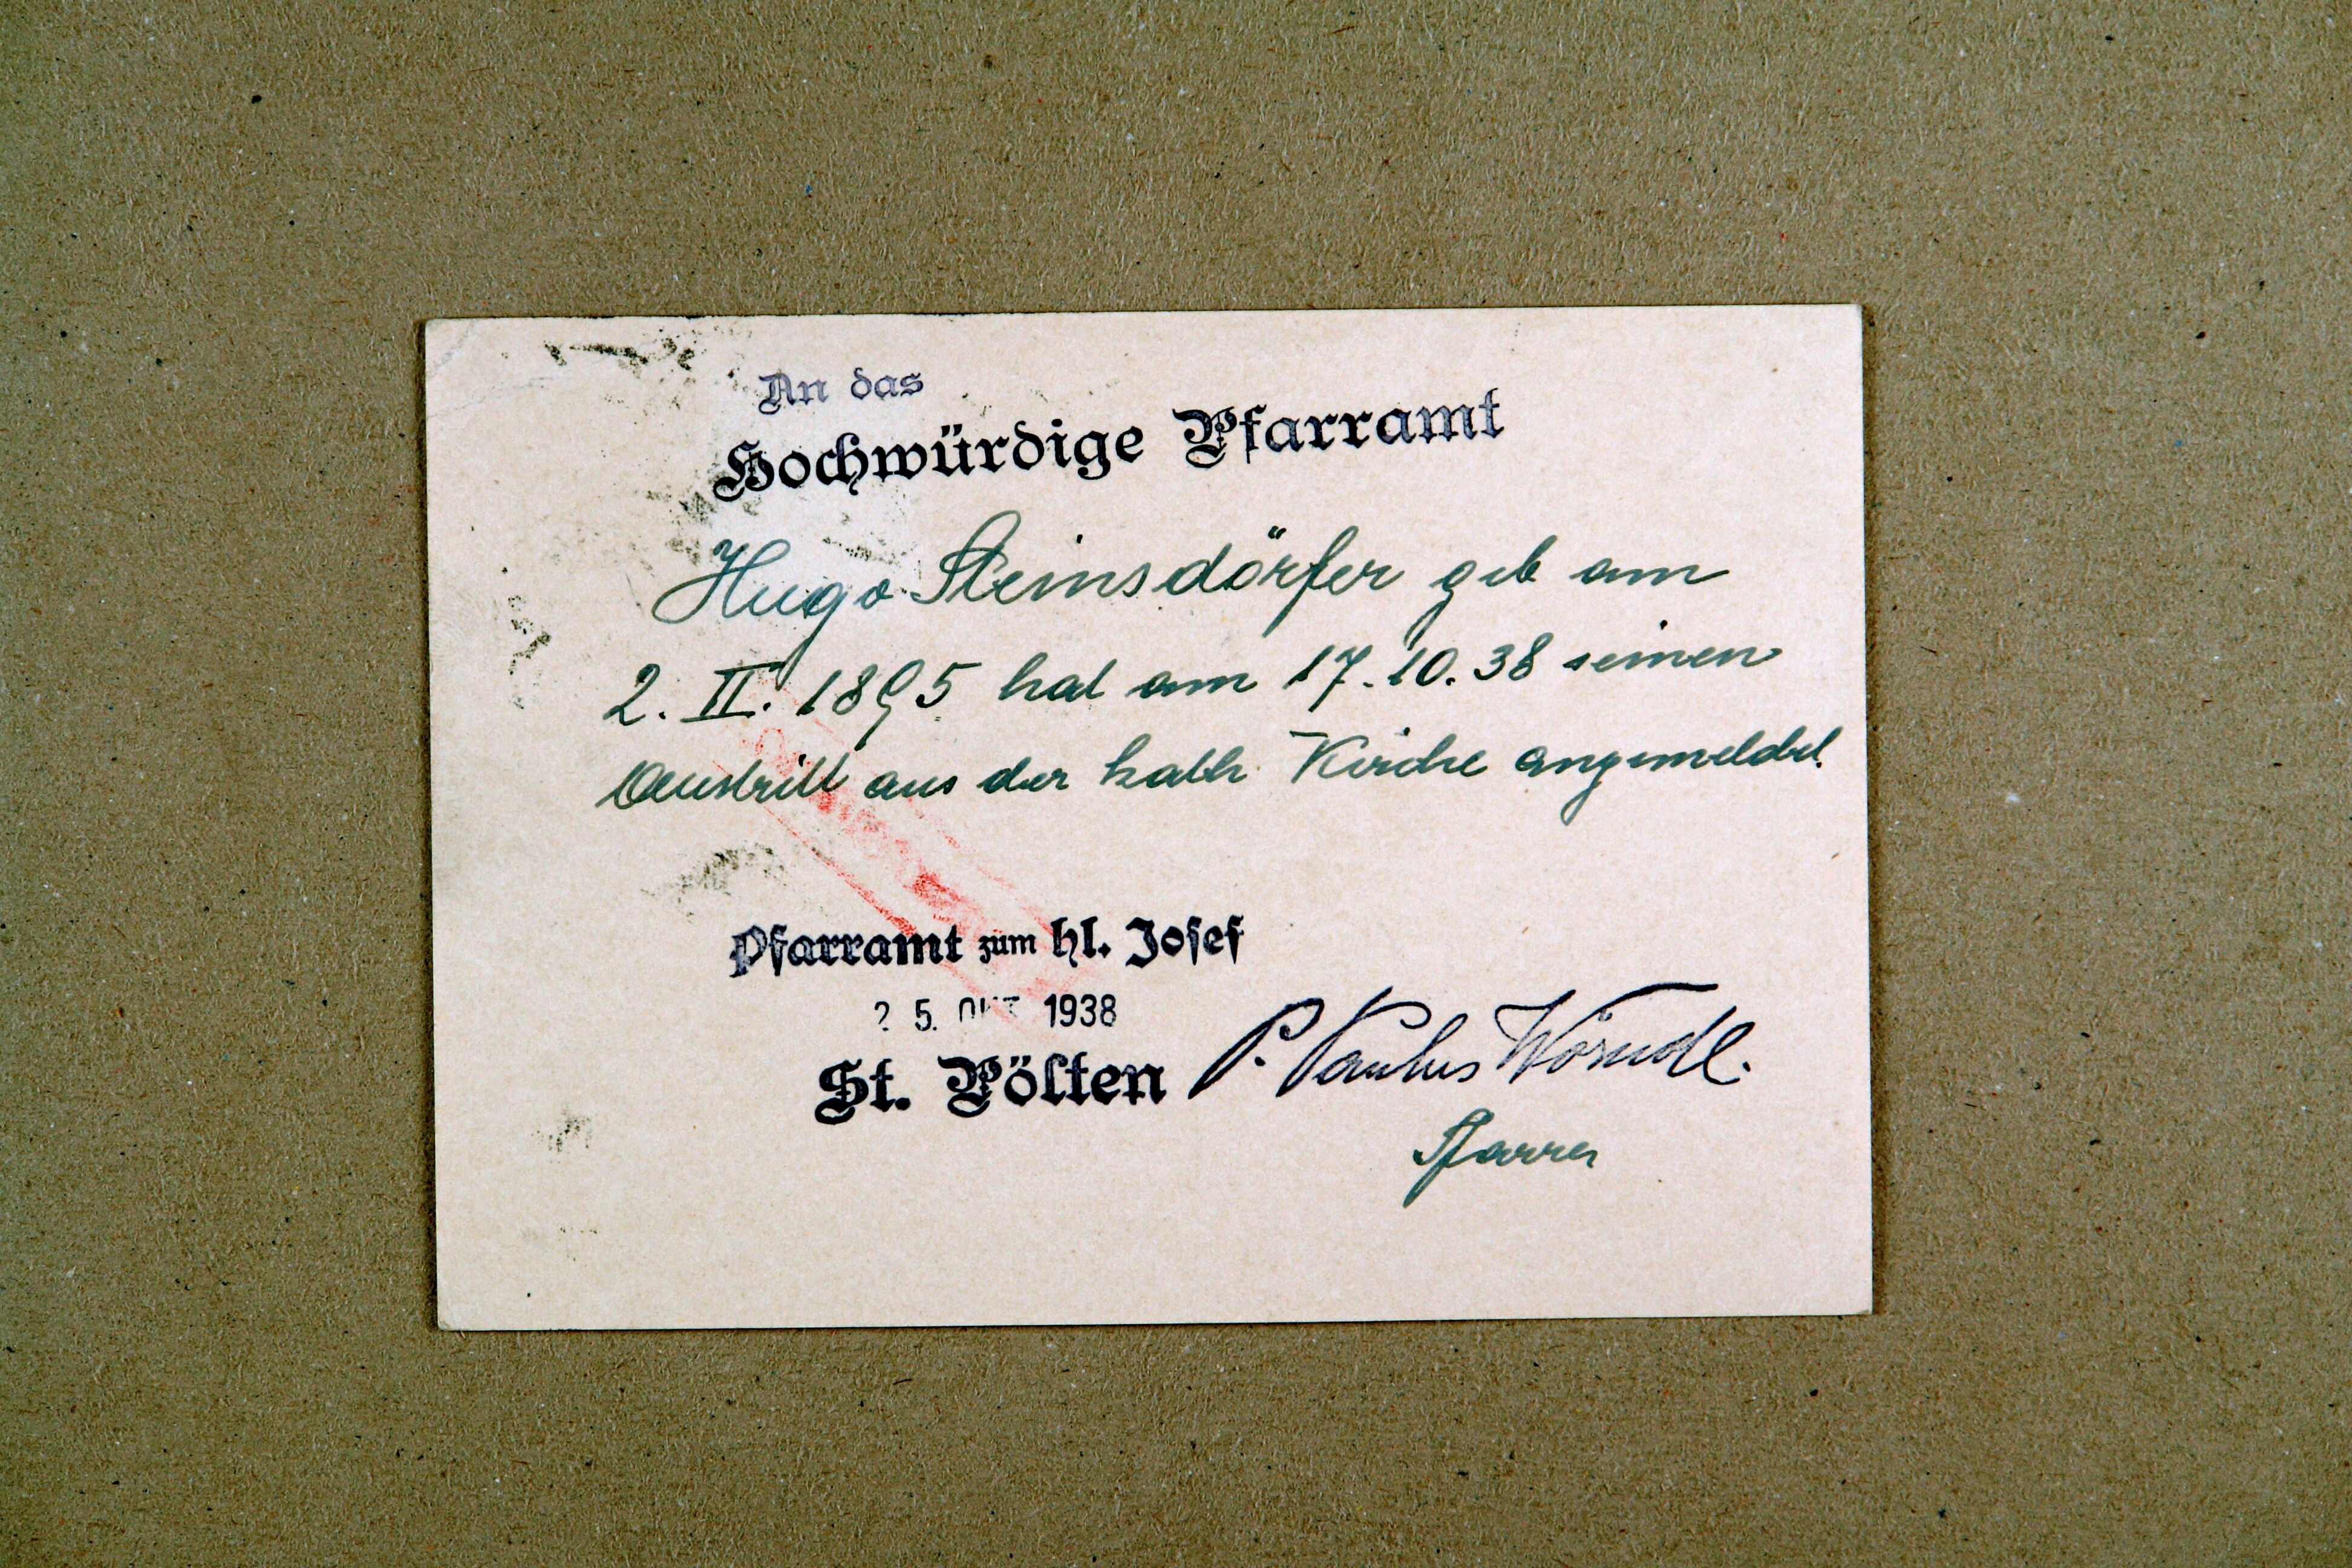 An das
Hochwürdige Pfarramt
Hugo Steinsdörfer geb am
2. II. 1895 hat am 17.10.38 seinen
Austritt aus der kath Kirche angemeldet.
Pfarramt zum hl. Josef
25. OKT 1938
St. Pölten
P. Paulus Wörndl.
Pfarrer